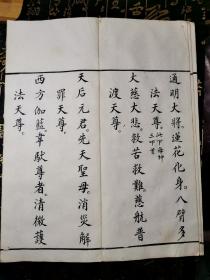 通明大將。蓮花化身。八臂多
法天尊。此下每神三叩首
大慈大悲。救苦救難慈航普
渡天尊。
天后元君。先天聖母。消災解
罪天尊。
西方伽藍。韋馱尊者。清微護
法天尊。